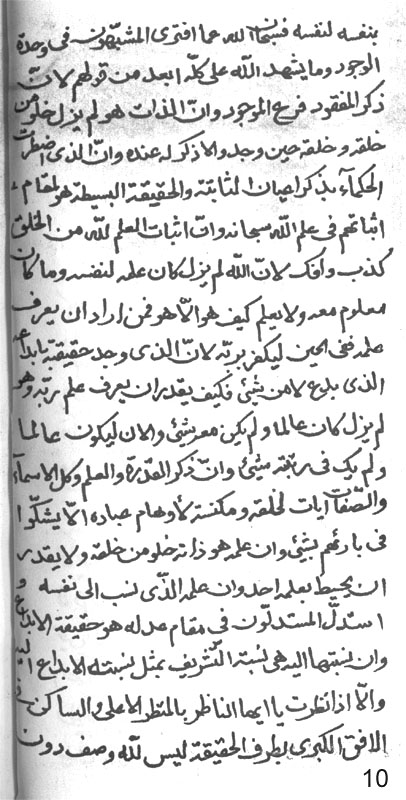 بنفسه لنفسه فسبحان الله عما افترى المشبّهون فى وحدة
الوجود وما يشهد الله على كلّه ابعد من قولهم لانّ
ذكر المفقود فرع الموجود وانّ الذات هو لم يزل خلو من
خلقه و خلقه حين وجد والا ذكر له عنده وانّ الذى اضطرت
الحكمآء بذكر اعيان الثابتة والحقيقة البسيطة هو لمقام
اثباتهم فى علم الله سبحانه وانّ اثبات العلم لله من الخلق
كذب وافك لانّ الله لم يزل كان علمه لنفسه وما كان
معلوم معه ولا يعلم كيف هو الّا هو فمن اراد ان يعرف
علمه ففى الحين ليكفر بربّه لانّ الذى وجد حقيقته ابداعه
الذى بدع لا من شیئ فكيف يقدر ان يعرف علم ربّه وهو
لم يزل كان عالما ولم يكن معه شیئ والان ليكون عالما
ولم يك فى رتبته شیئ وانّ ذكر القدرة والعلم وكل الاسمآء
والصّفات ايات لخلقه ومكنسة لاوهام عباده الّا يشكّوا
فى بارئهم بشیئ وان علمه هو ذاته خلو من خلقه ولا يقدر
ان يحيط بعلمه احد وان علمه الذى نسب الى نفسه و
استدلّ المستدلّون فى مقام عدله هو حقيقة الابداع
وان نسبتها اليه هى نسبة التّشريف بمثل نسبته الابداع اليه
والّا اذا نظرت يا ايها الناظر بالمنظر الاعلى والساكن فى
الافق الكبرى بطرف الحقيقة ليس لله وصف دون
10